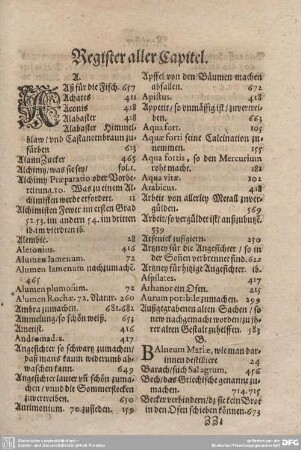 Register aller Capitel.
A.
Aß für die Fisch. 657
Achates 411
Aconis 418
Alabaster 428
Alabaster Himmel-
blaw/ vnd Castanenbraun zu
färben 613
AlaunZucker 465
Alchimy/was sie sey/ fol.1.
Alchimy Præparatio oder Vorbe-
reitung.10. Was zu einem Al-
chimisten werde erfordert. 11
Alchimisten Fewer im ersten Grad
52.53. im andern 54. im dritten
ib. im vierdten ib.
Alembic. 28
Aletorium. 416
Alumen lamenum. 72
Alumen lamenum nachzumachē.
465
Alumen plumosum. 72
Alumen Rochæ. 72. Natur. 260
Ambra zu machen. 681.682
Ammelung/so schön weiß. 653
Ameist. 416
Andromada. 417
Angesichter so schwartz zu machen/
daß mans kaum widerumb ab-
waschen kann. 649
Angesichter lauter vñ schön zuma-
chen/ vnd die Sommerflecken
zu vertreiben. 650
Antimonium. 70. zu sieden. 159
Apffel von den Bäumen machen
abfallen. 672
Apistus. 418
Appetit/ so vnmäßig ist/ zuvertrei-
ben. 663
Aqua fort. 105
Aquæ forti seine Calcination zu
nemmen. 155
Aqua fortis, so den Mercurium
roht macht. 181
Aqua vitæ. 102
Arabicus. 418
Arbeit von allerley Metall zuver-
gülden. 569
Arbeit/so vergüldet ist/ außzubutzē.
539
Arsenick zufigiern. 230
Artzney für die Angesichter / so in
der Soñen verbrennet sind. 622
Artzney für hitzige Angesichter. ib.
Aspilates. 417
Athanor ein Ofen. 215
Aurum potibile zumachen. 299
Außgegrabenen alten Sachen/ so
new nachgemacht worden/zu jh-
rer alten Gestalt zu helffen. 583
B.
BAlneum Mariæ, wie man dar-
innen destilliere 24
Barach/ such Salagrum. 456
Bech/das Griechisch genañt zu-
machen. 714.715
Becker verhindern/ dz sie kein Brot
in den Ofen schieben können. 673
ZZ ij